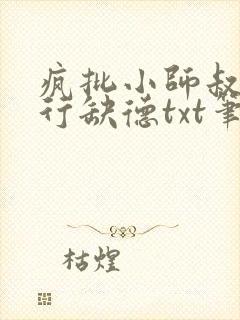 疯批小師叔
行缺德txt筆
枯煌